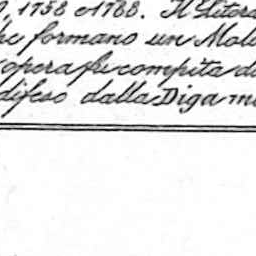 , 1758 e 1788. Il Litora
he formano un Molo
opera fu compita d
difeso dalla Diga m